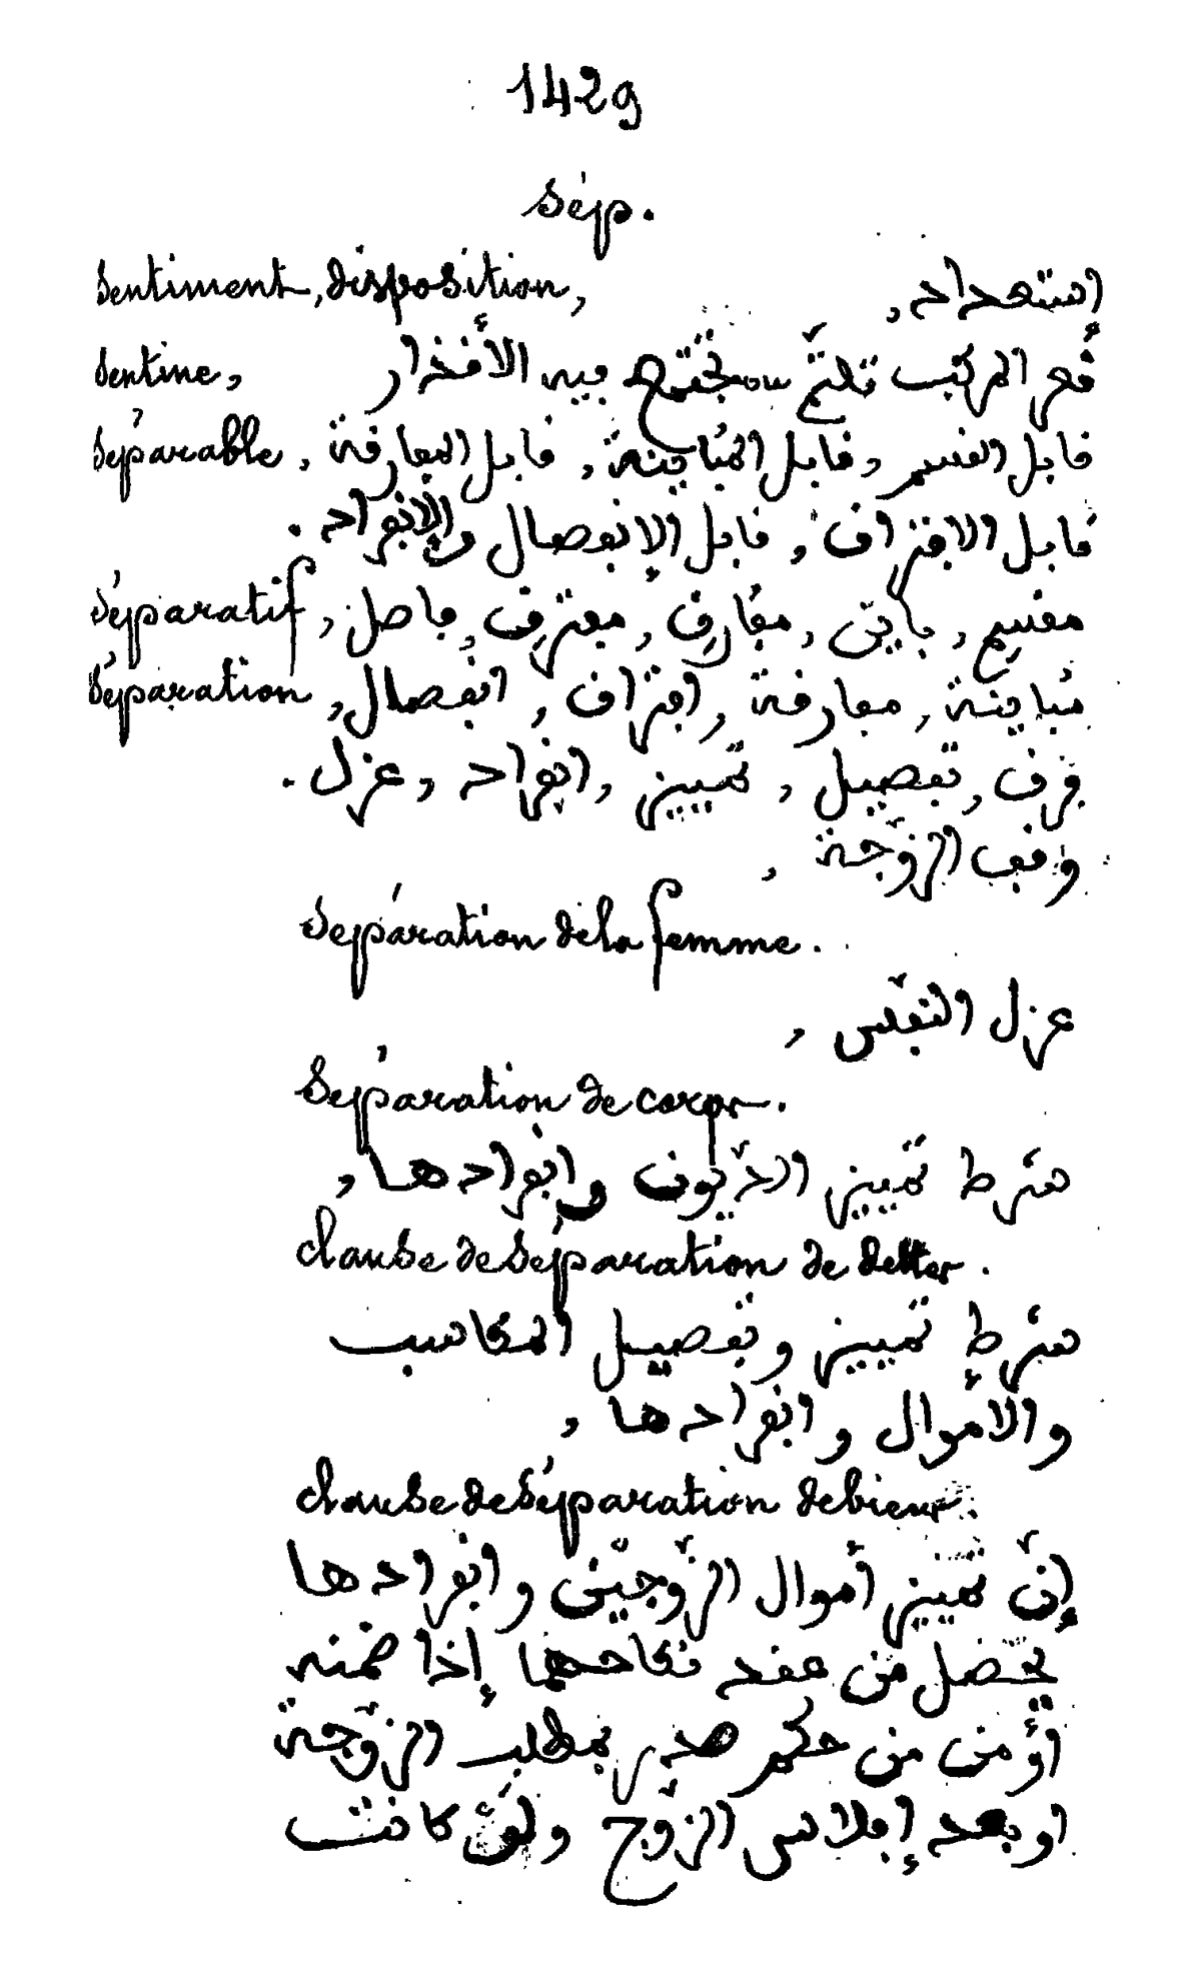 1429
Sép.
Sentiment, disposition, إستعداد,
Sentine, قعر المركب تلتمّ ou يجتمع فيه الأقذار
Séparable, قابل القسم, قابل المُباينة, قابل المفارقة
قابل الافتراق, قابل الإنفصال والإنفراد.
Séparatif, مقسِم, باين, مفارِق, مفترِق, فاصل
Séparation, مُباينة, مفارقة, افتراق, انفصال
فرق, تفصيل, تمييز, انفراد, عزل.
وقف الزوّجة,
Séparation de la femme.
عزل النّفس,
Séparation de corps.
شرط تمييز الدّيون وانفرادها,
Clause de Séparation de dettes.
شرط تمييز وتفصيل المكاسب
والأموال وانفرادها,
Clause de Séparation de biens.
إنّ تمييز أموال الزّوجين وانفرادها
يحصل من عقد نكاحهما إذا ضمنه
أو من من حكم صدر بمطلب الزّوجة
او بعد إفلاس الزّوج ولو كانت